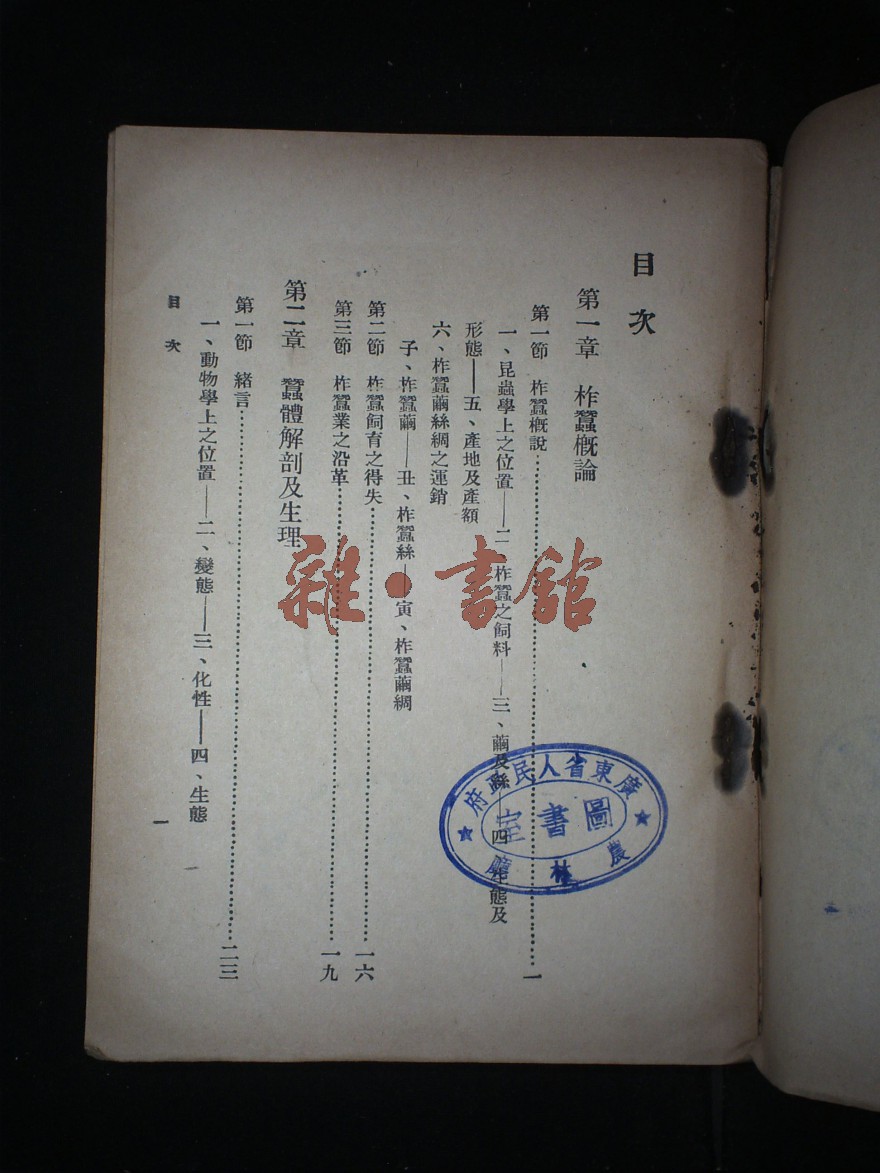 目次
第一章 柞蠶概論
第一節 柞蠶概說…………一
一、昆蟲學上之位置——二、柞蠶之飼料——三、繭及絲——四、生態及
形態——五、產地及產額
六、柞蠶繭絲綢之運銷
子、柞蠶繭——丑、柞蠶絲——寅、柞蠶繭綢
第二節 柞蠶飼育之得失…………一六
第三節 柞蠶業之沿革…………一九
第二章 蠶體解剖及生理
第一節 緒言…………二三
一、動物學上之位置——二、變態——三、化性——四、生態
目次
一
雜·書館
廣東省人民政府
農林廳
圖書室